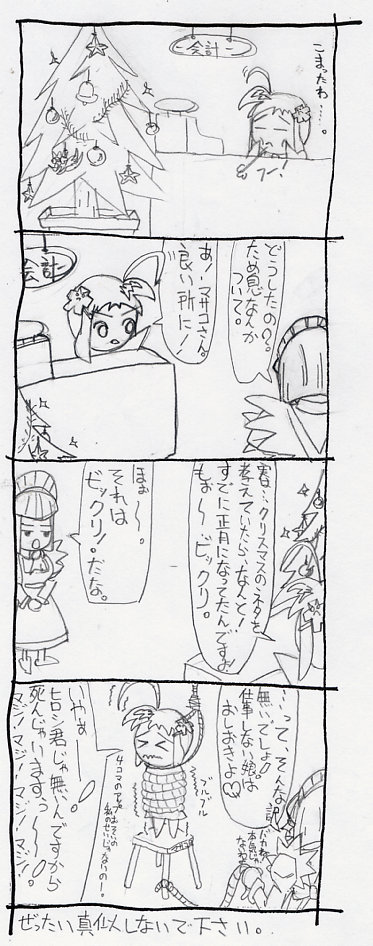 会計
こまったわ……。
フー!
どうしたの?。
ため息なんか
ついて。
あ!マサコさん。
良い所に!
会計
実は…クリスマスのネタを
考えていたら、なんと!
すでに正月になってたんですぉ
もぉ〜〜ビックリ。
ほぉ〜。
それは
ビックリ!だな。
…って、そんな訳
無いでしょ!
仕事しない娘は
おしおきよ♡
ブルブル
4コマのアップはおそいの
私のせいじゃないのー!
いやぁー
ヒロシ君じゃ無いんですから
死んじゃいますぅ〜〜!
マジ!マジ!マジ!マジ!
ぜったい真似しないで下さい。